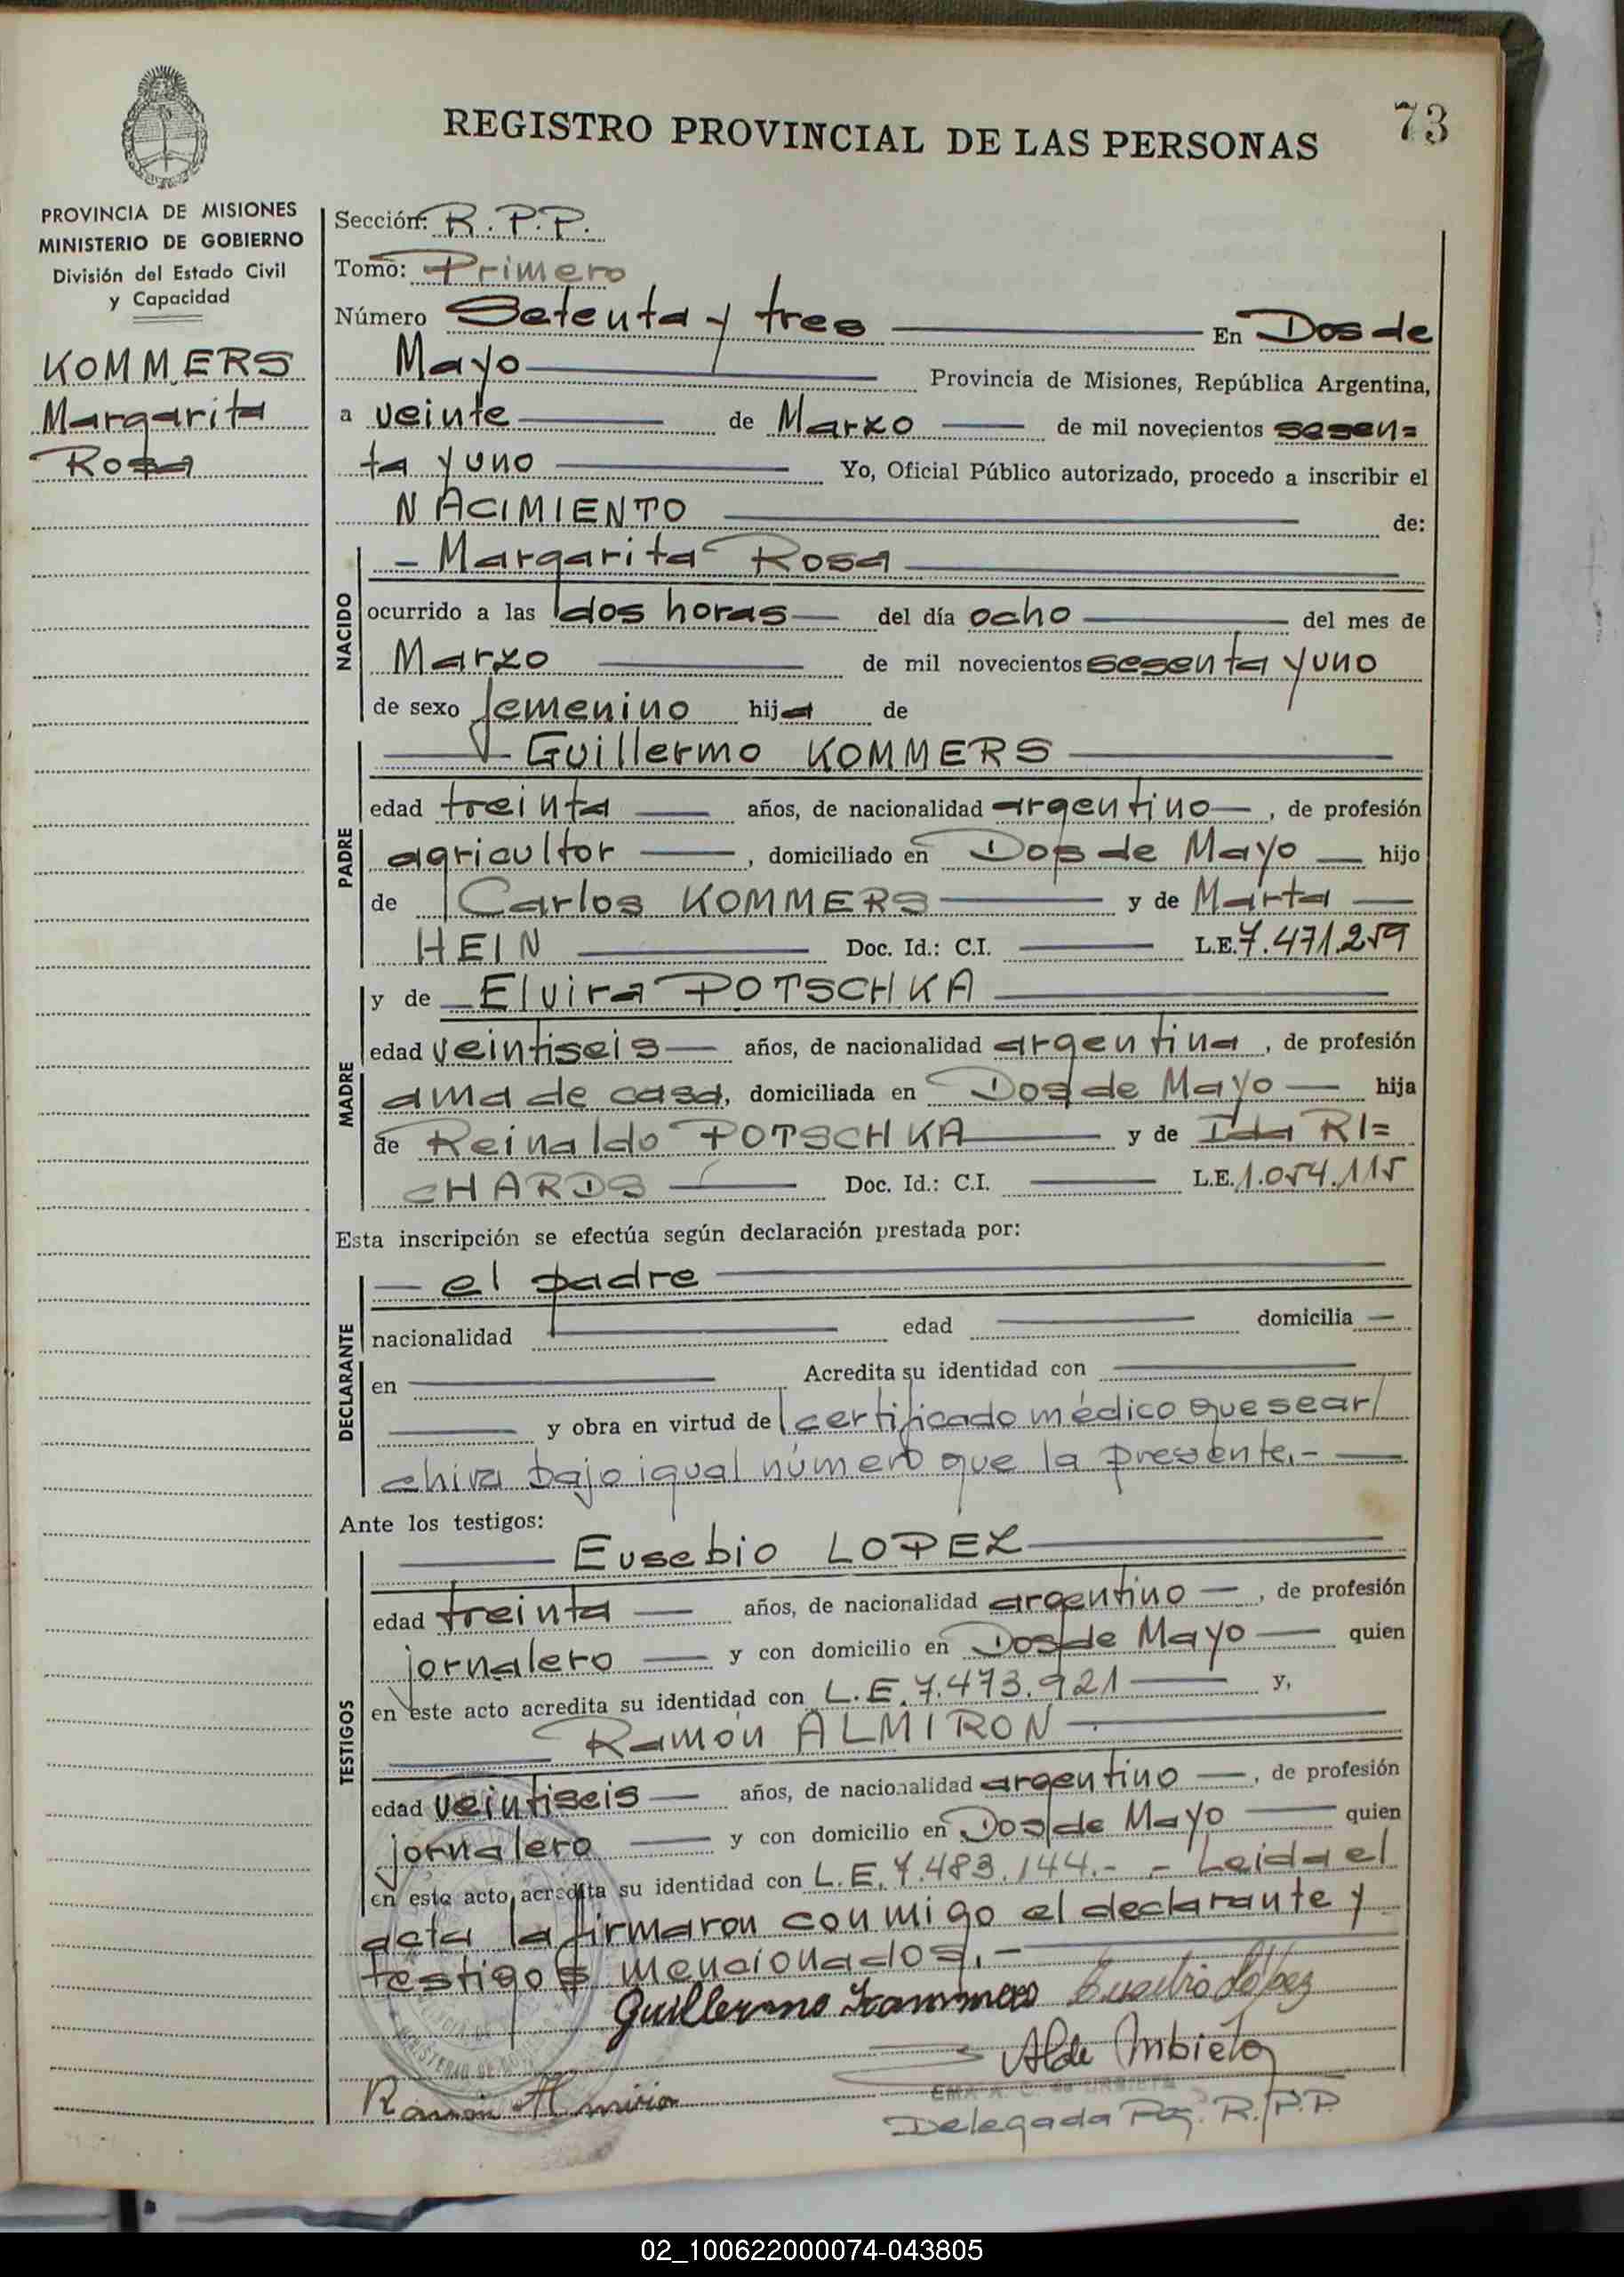 73
REGISTRO PROVINCIAL DE LAS PERSONAS
PROVINCIA DE MISIONES
MINISTERIO DE GOBIERNO
División del Estado Civil
y Capacidad
KOMMERS
Margarita
Rosa
Sección: R.P.P.
Tomo: Primero
Número Setenta y tres En Dos de
Mayo Provincia de Misiones, República Argentina,
a veinte de Marzo de mil novecientos sesen=
ta y uno Yo, Oficial Público autorizado, procedo a inscribir el
NACIMIENTO de:
NACIDO
- Margarita Rosa
ocurrido a las dos horas del día ocho del mes de
Marzo de mil novecientos sesenta y uno
de sexo femenino hija de
PADRE
Guillermo KOMMERS
edad treinta años, de nacionalidad argentino, de profesión
agricultor, domiciliado en Dos de Mayo hijo
de Carlos KOMMERS y de Marta
HEIN Doc. Id.: C.I. L.E. 7.471.259
MADRE
y de Elvira POTSCHKA
edad veintiseis años, de nacionalidad argentina, de profesión
ama de casa, domiciliada en Dos de Mayo hija
de Reinaldo POTSCHKA y de Ida RI=
CHARDS Doc. Id.: C.I. L.E. 1.054.115
Esta inscripción se efectúa según declaración prestada por:
DECLARANTE
el padre
nacionalidad edad domicilia
en Acredita su identidad con
y obra en virtud de certificado médico que se ar/
chiva bajo igual número que la presente.-
Ante los testigos:
TESTIGOS
Eusebio LOPEZ
edad treinta años, de nacionalidad argentino, de profesión
jornalero y con domicilio en Dos de Mayo quien
en este acto acredita su identidad con L.E. 7.473.921 y,
Ramón ALMIRON
edad veintiseis años, de nacionalidad argentino, de profesión
jornalero y con domicilio en Dos de Mayo quien
en este acto acredita su identidad con L.E. 7.483.144.- - Leida el
acta la firmaron conmigo el declarante y
testigos mencionados.-
Guillermo Kommers Eusebio López
MINISTERIO DE
Ramón Almiron
Delegada R.P.P.
02_100622000074-043805